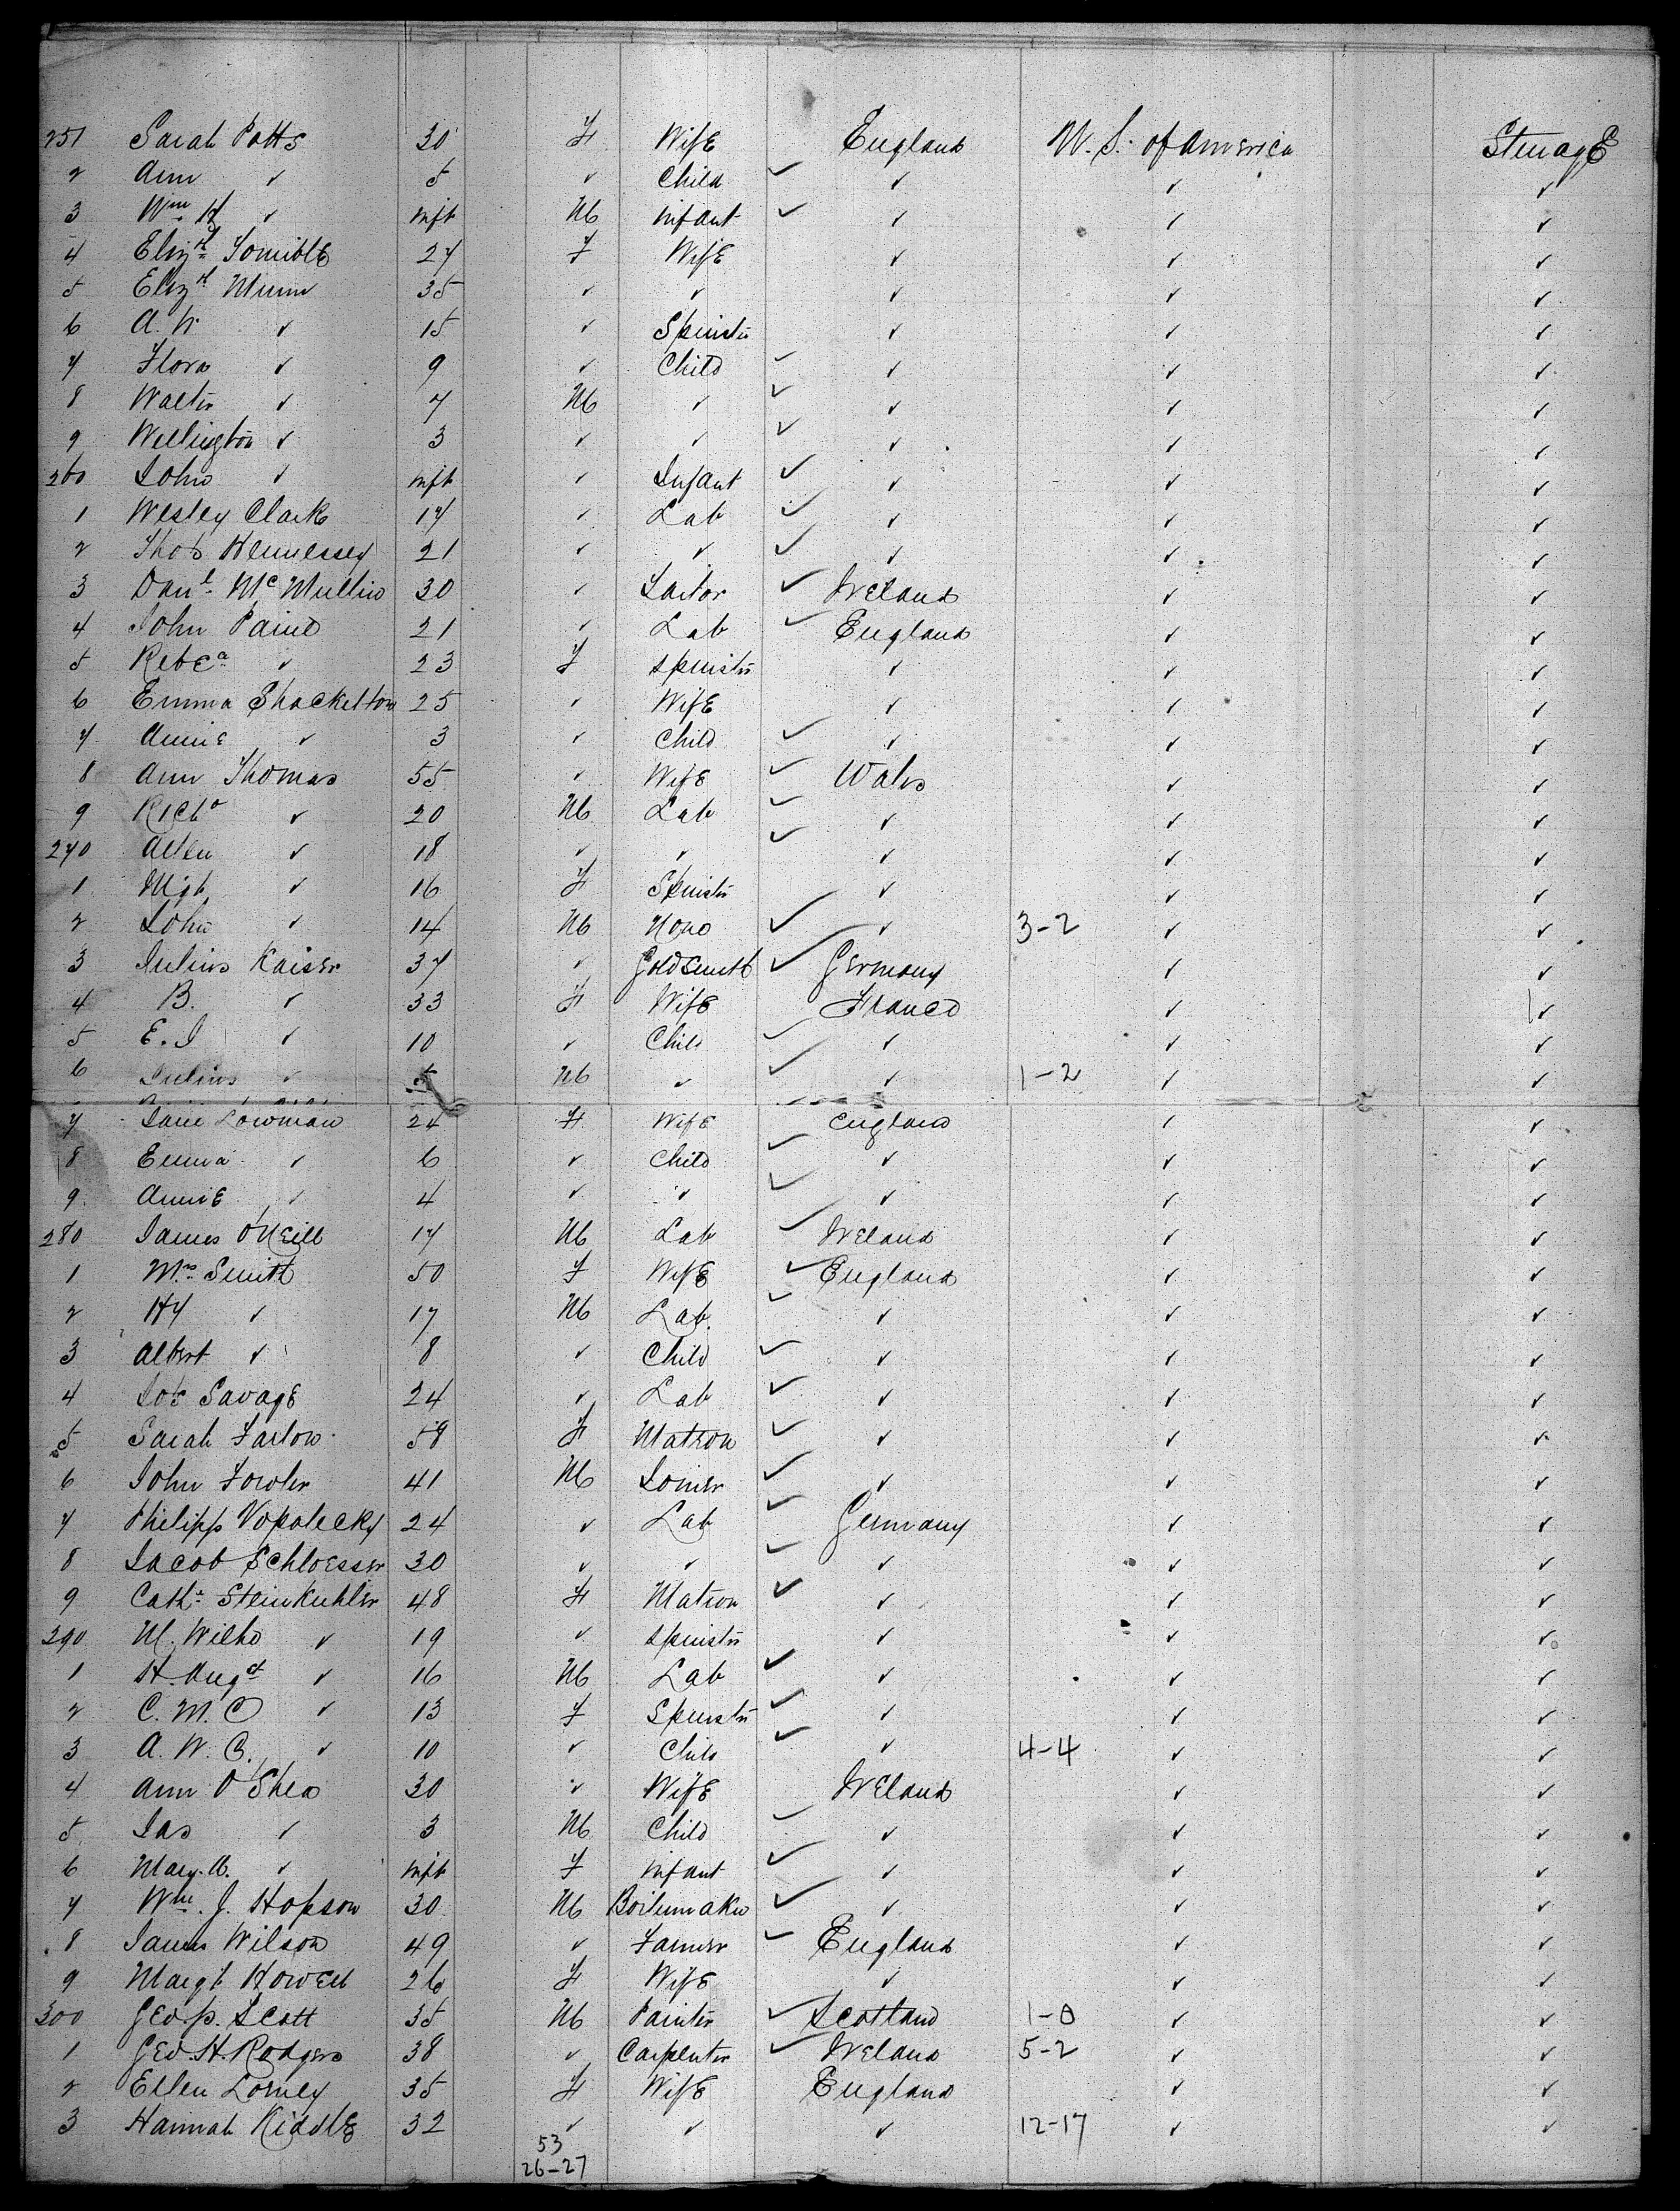 251 Sarah Potts 30 F Wife England U.S. of America Steerage
2 Ann ✓ 5 ✓ Child ✓ ✓ ✓ ✓
3 Wm H ✓ inft M infant ✓ ✓ ✓ ✓
4 Elizth 27 F Wife ✓ ✓ ✓
5 Elizth Munn 35 ✓ ✓ ✓ ✓ ✓
6 A. W ✓ 15 ✓ Spinstr ✓ ✓ ✓
7 Flora ✓ 9 ✓ Child ✓ ✓ ✓ ✓
8 Walter ✓ 7 M ✓ ✓ ✓ ✓ ✓
9 Wellington ✓ 3 ✓ ✓ ✓ ✓ ✓ ✓
260 John ✓ inft ✓ Infant ✓ ✓ ✓ ✓
1 Wesley Clark 17 ✓ Lab ✓ ✓ ✓ ✓
2 Thos Hennessey 21 ✓ ✓ ✓ ✓ ✓ ✓
3 Danl McMullin 30 ✓ Tailor ✓ Ireland ✓ ✓
4 John Paine 21 ✓ Lab ✓ England ✓ ✓
5 Rebca ✓ 23 F spinstr ✓ ✓ ✓
6 Emma Shackelton 25 ✓ Wife ✓ ✓ ✓
7 Annie ✓ 3 ✓ Child ✓ ✓ ✓ ✓
8 Ann Thomas 55 ✓ Wife ✓ Wales ✓ ✓
9 Richd ✓ 20 M Lab ✓ ✓ ✓ ✓
270 Allen ✓ 18 ✓ ✓ ✓ ✓ ✓ ✓
1 Mgt ✓ 16 F Spinstr ✓ ✓ ✓
2 John ✓ 14 M None ✓ ✓ 3-2 ✓ ✓
3 Julius Kaiser 37 ✓ Goldsmith ✓ Germany ✓ ✓
4 B. ✓ 33 F Wife France ✓ ✓
5 E. J ✓ 10 ✓ Child ✓ ✓ ✓ ✓
6 Julius ✓ 5 M ✓ ✓ ✓ 1-2 ✓ ✓
7 Jane Lowman 24 F Wife England ✓ ✓
8 Emma ✓ 6 ✓ Child ✓ ✓ ✓ ✓
9 Annie ✓ 4 ✓ ✓ ✓ ✓ ✓ ✓
280 James O'Neill 17 M Lab ✓ Ireland ✓ ✓
1 Mrs Smith 50 F Wife ✓ England ✓ ✓
2 Hy ✓ 17 M Lab. ✓ ✓ ✓ ✓
3 Albert ✓ 8 ✓ Child ✓ ✓ ✓ ✓
4 Jos Savage 24 ✓ Lab ✓ ✓ ✓ ✓
5 Sarah Farlow 58 F Matron ✓ ✓ ✓ ✓
6 John Fowler 41 M Joiner ✓ ✓ ✓ ✓
7 Philipp Vopolecky 24 ✓ Lab ✓ Germany ✓ ✓
8 Jacob Schloesser 30 ✓ ✓ ✓ ✓ ✓ ✓
9 Cathe Steinkuhler 48 F Matron ✓ ✓ ✓ ✓
290 M. Wilhe ✓ 19 ✓ spinstr ✓ ✓ ✓
1 H. Augt ✓ 16 M Lab ✓ ✓ ✓ ✓
2 C. M. C ✓ 13 F Spinstr ✓ ✓ ✓ ✓
3 A. W. C. ✓ 10 ✓ Child ✓ ✓ 4-4 ✓ ✓
4 Ann O'Shea 30 ✓ Wife Ireland ✓ ✓
5 Jas ✓ 3 M Child ✓ ✓ ✓ ✓
6 Mary A. ✓ inft F infant ✓ ✓ ✓ ✓
7 Wm. J. Hopson 30 M Boilermaker ✓ ✓ ✓ ✓
8 James Wilson 49 ✓ Farmer ✓ England ✓ ✓
9 Margt Howell 26 F Wife ✓ ✓ ✓
300 Geo. p. Scott 35 M Painter ✓ Scotland 1-0 ✓ ✓
1 Geo. H. Rodgers 38 ✓ Carpenter ✓ Ireland 5-2 ✓ ✓
2 Ellen Lorney 35 F Wife England ✓ ✓
3 Hannah Kiddle 32 ✓ ✓ ✓ 12-17 ✓ ✓
53
26-27